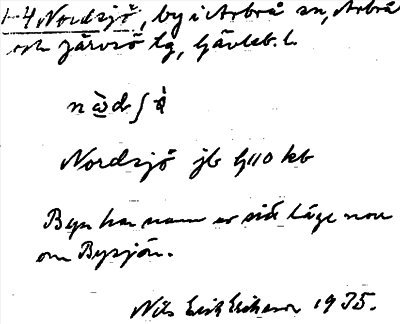 1-4 Nordsjö, by i Arbrå sn, Arbrå
och Järvsö tg, Gävleb. l.
Nordsjö jb G110 kb
Byn har namn av sitt läge norr
om Bysjön.
Nils Erik Erikson 1935.